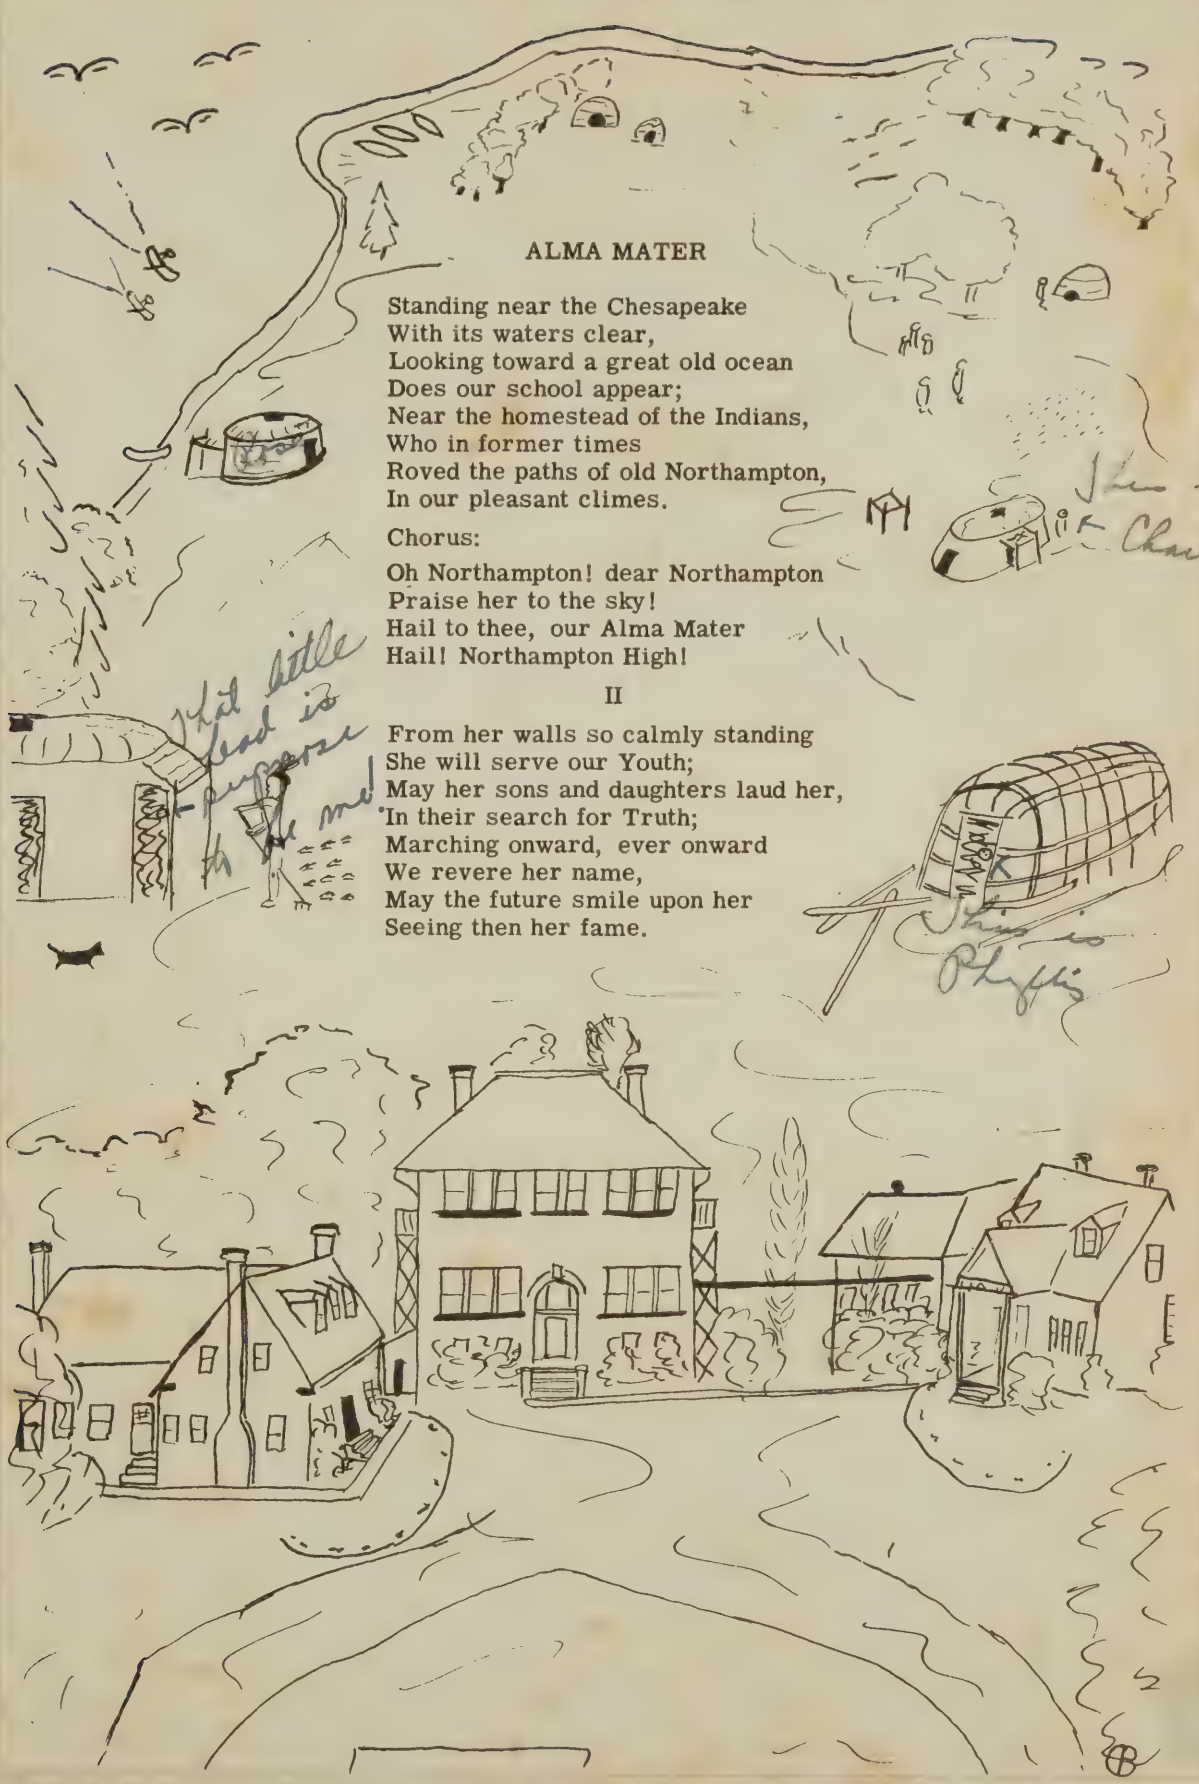 ALMA MATER
Standing near the Chesapeake
With its waters clear,
Looking toward a great old ocean
Does our school appear;
Near the homestead of the Indians,
Who in former times
Roved the paths of old Northampton,
In our pleasant climes.
Chorus:
Oh Northampton! dear Northampton
Praise her to the sky!
Hail to thee, our Alma Mater
Hail! Northampton High!
II
From her walls so calmly standing
She will serve our Youth;
May her sons and daughters laud her,
In their search for Truth;
Marching onward, ever onward
We revere her name,
May the future smile upon her
Seeing then her fame.
Rose
That little
head is
to be me!
This is
Phyllis